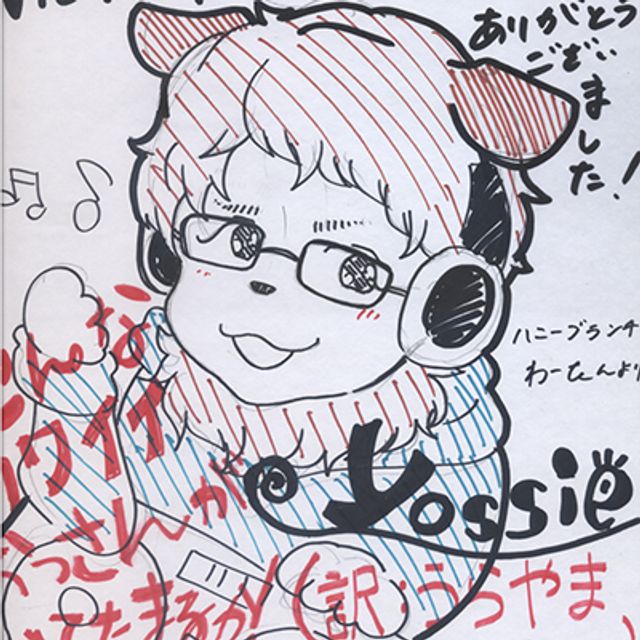 ありがとう
ござい
ました!
ハニーブランチ
わーたんより
Yossie
んな
ワイイ
っさんが
たまるか(訳:うらやま